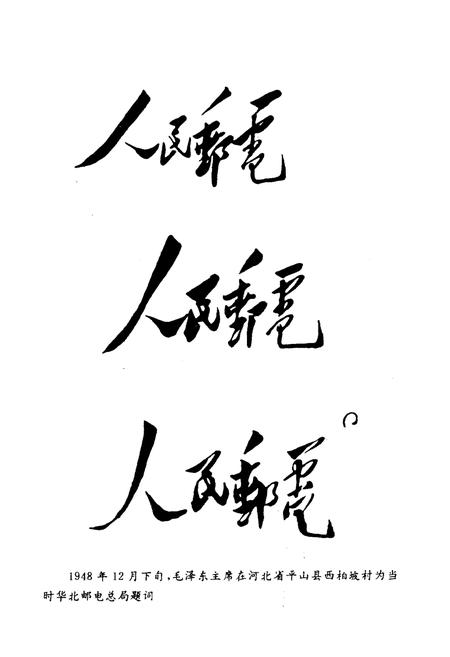 人民郵電
人民郵電
人民郵電
1948年12月下旬,毛泽东主席在河北省平山县西柏坡村为当
时华北邮电总局题词